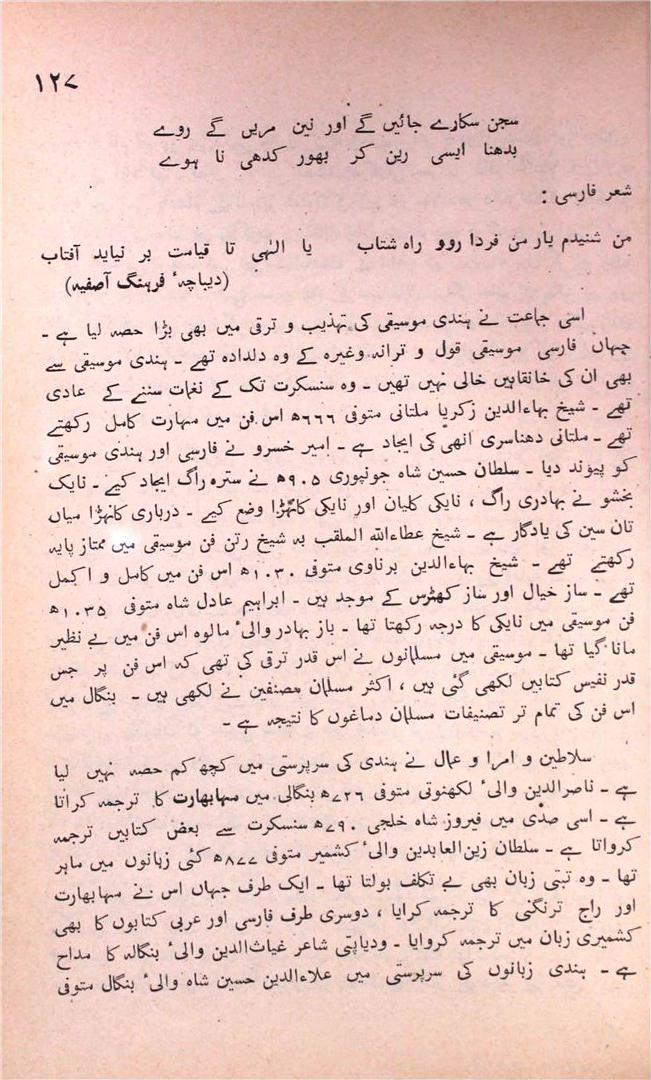 ۱۲۷
سجن سکارے جائیں گے اور نین مریں گے روے
بدھنا ایسی رین کر بھور کدھی نا ہوے
شعر فارسی :
من شنیدم یار من فردا روو راہ شتاب یا الٰہی تا قیامت بر نیاید آفتاب
(دیباچۂ فرہنگ آصفیہ)
اسی جماعت نے ہندی موسیقی کی تہذیب و ترقی میں بھی بڑا حصہ لیا ہے ۔
جہاں فارسی موسیقی قول و ترانہ وغیرہ کے وہ دلدادہ تھے ۔ ہندی موسیقی سے
بھی ان کی خانقاہیں خالی نہیں تھیں ۔ وہ سنسکرت تک کے نغمات سننے کے عادی
تھے ۔ شیخ بہاءالدین زکریا ملتانی متوفی ۶۶۶ھ اس فن میں مہارت کامل رکھتے
تھے ۔ ملتانی دھناسری انھی کی ایجاد ہے ۔ امیر خسرو نے فارسی اور ہندی موسیقی
کو پیوند دیا ۔ سلطان حسین شاہ جونپوری ۹۰۵ھ نے سترہ راگ ایجاد کیے ۔ نایک
بخشو نے بہادری راگ ، نایکی کلیان اور نایکی کانھڑا وضع کیے ۔ درباری کانہڑا میاں
تان سین کی یادگار ہے ۔ شیخ عطاءاللہ الملقب بہ شیخ رتن فن موسیقی میں ممتاز پایہ
رکھتے تھے ۔ شیخ بہاءالدین برناوی متوفی ۱۰۳۰ھ اس فن میں کامل و اکمل
تھے ۔ ساز خیال اور ساز کھٹرس کے موجد ہیں ۔ ابراہیم عادل شاہ متوفی ۱۰۳۵ھ
فن موسیقی میں نایکی کا درجہ رکھتا تھا ۔ باز بہادر والیٔ مالوہ اس فن میں بے نظیر
مانا گیا تھا ۔ موسیقی میں مسلمانوں نے اس قدر ترقی کی تھی کہ اس فن پر جس
قدر نفیس کتابیں لکھی گئی ہیں ، اکثر مسلمان مصنفین نے لکھی ہیں ۔ بنگال میں
اس فن کی تمام تر تصنیفات مسلمان دماغوں کا نتیجہ ہے ۔
سلاطین و امرا و عمال نے ہندی کی سرپرستی میں کچھ کم حصہ نہیں لیا
ہے ۔ ناصرالدین والیٔ لکھنوتی متوفی ۷۲۶ھ بنگالی میں مہابھارت کا ترجمہ کراتا
ہے ۔ اسی صدی میں فیروز شاہ خلجی ۷۹۰ھ سنسکرت سے بعض کتابیں ترجمہ
کرواتا ہے ۔ سلطان زین‌العابدین والیٔ کشمیر متوفی ۸۷۷ھ کئی زبانوں میں ماہر
تھا ۔ وہ تبتی زبان بھی بے تکلف بولتا تھا ۔ ایک طرف جہاں اس نے مہابھارت
اور راج ترنگنی کا ترجمہ کرایا ، دوسری طرف فارسی اور عربی کتابوں کا بھی
کشمیری زبان میں ترجمہ کروایا ۔ ودیاپتی شاعر غیاث‌الدین والیٔ بنگالہ کا مداح
ہے ۔ ہندی زبانوں کی سرپرستی میں علاءالدین حسین شاہ والیٔ بنگال متوفی